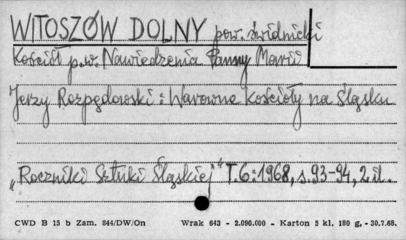 WITOSZÓW DOLNY pow. świdnicki
Kościół p.w. Nawiedzenia Panny Marii
Jerzy Rozpędowski : Warowne kościoły na Śląsku
„Roczniki Sztuki Śląskiej" T.6:1968, s.93-94, 2 il.
CWD B 15 b Zam. 844/DW/On Wrak 643 - 2.090.000 - Karton 5 kl. 180 g, - 30.7.68.